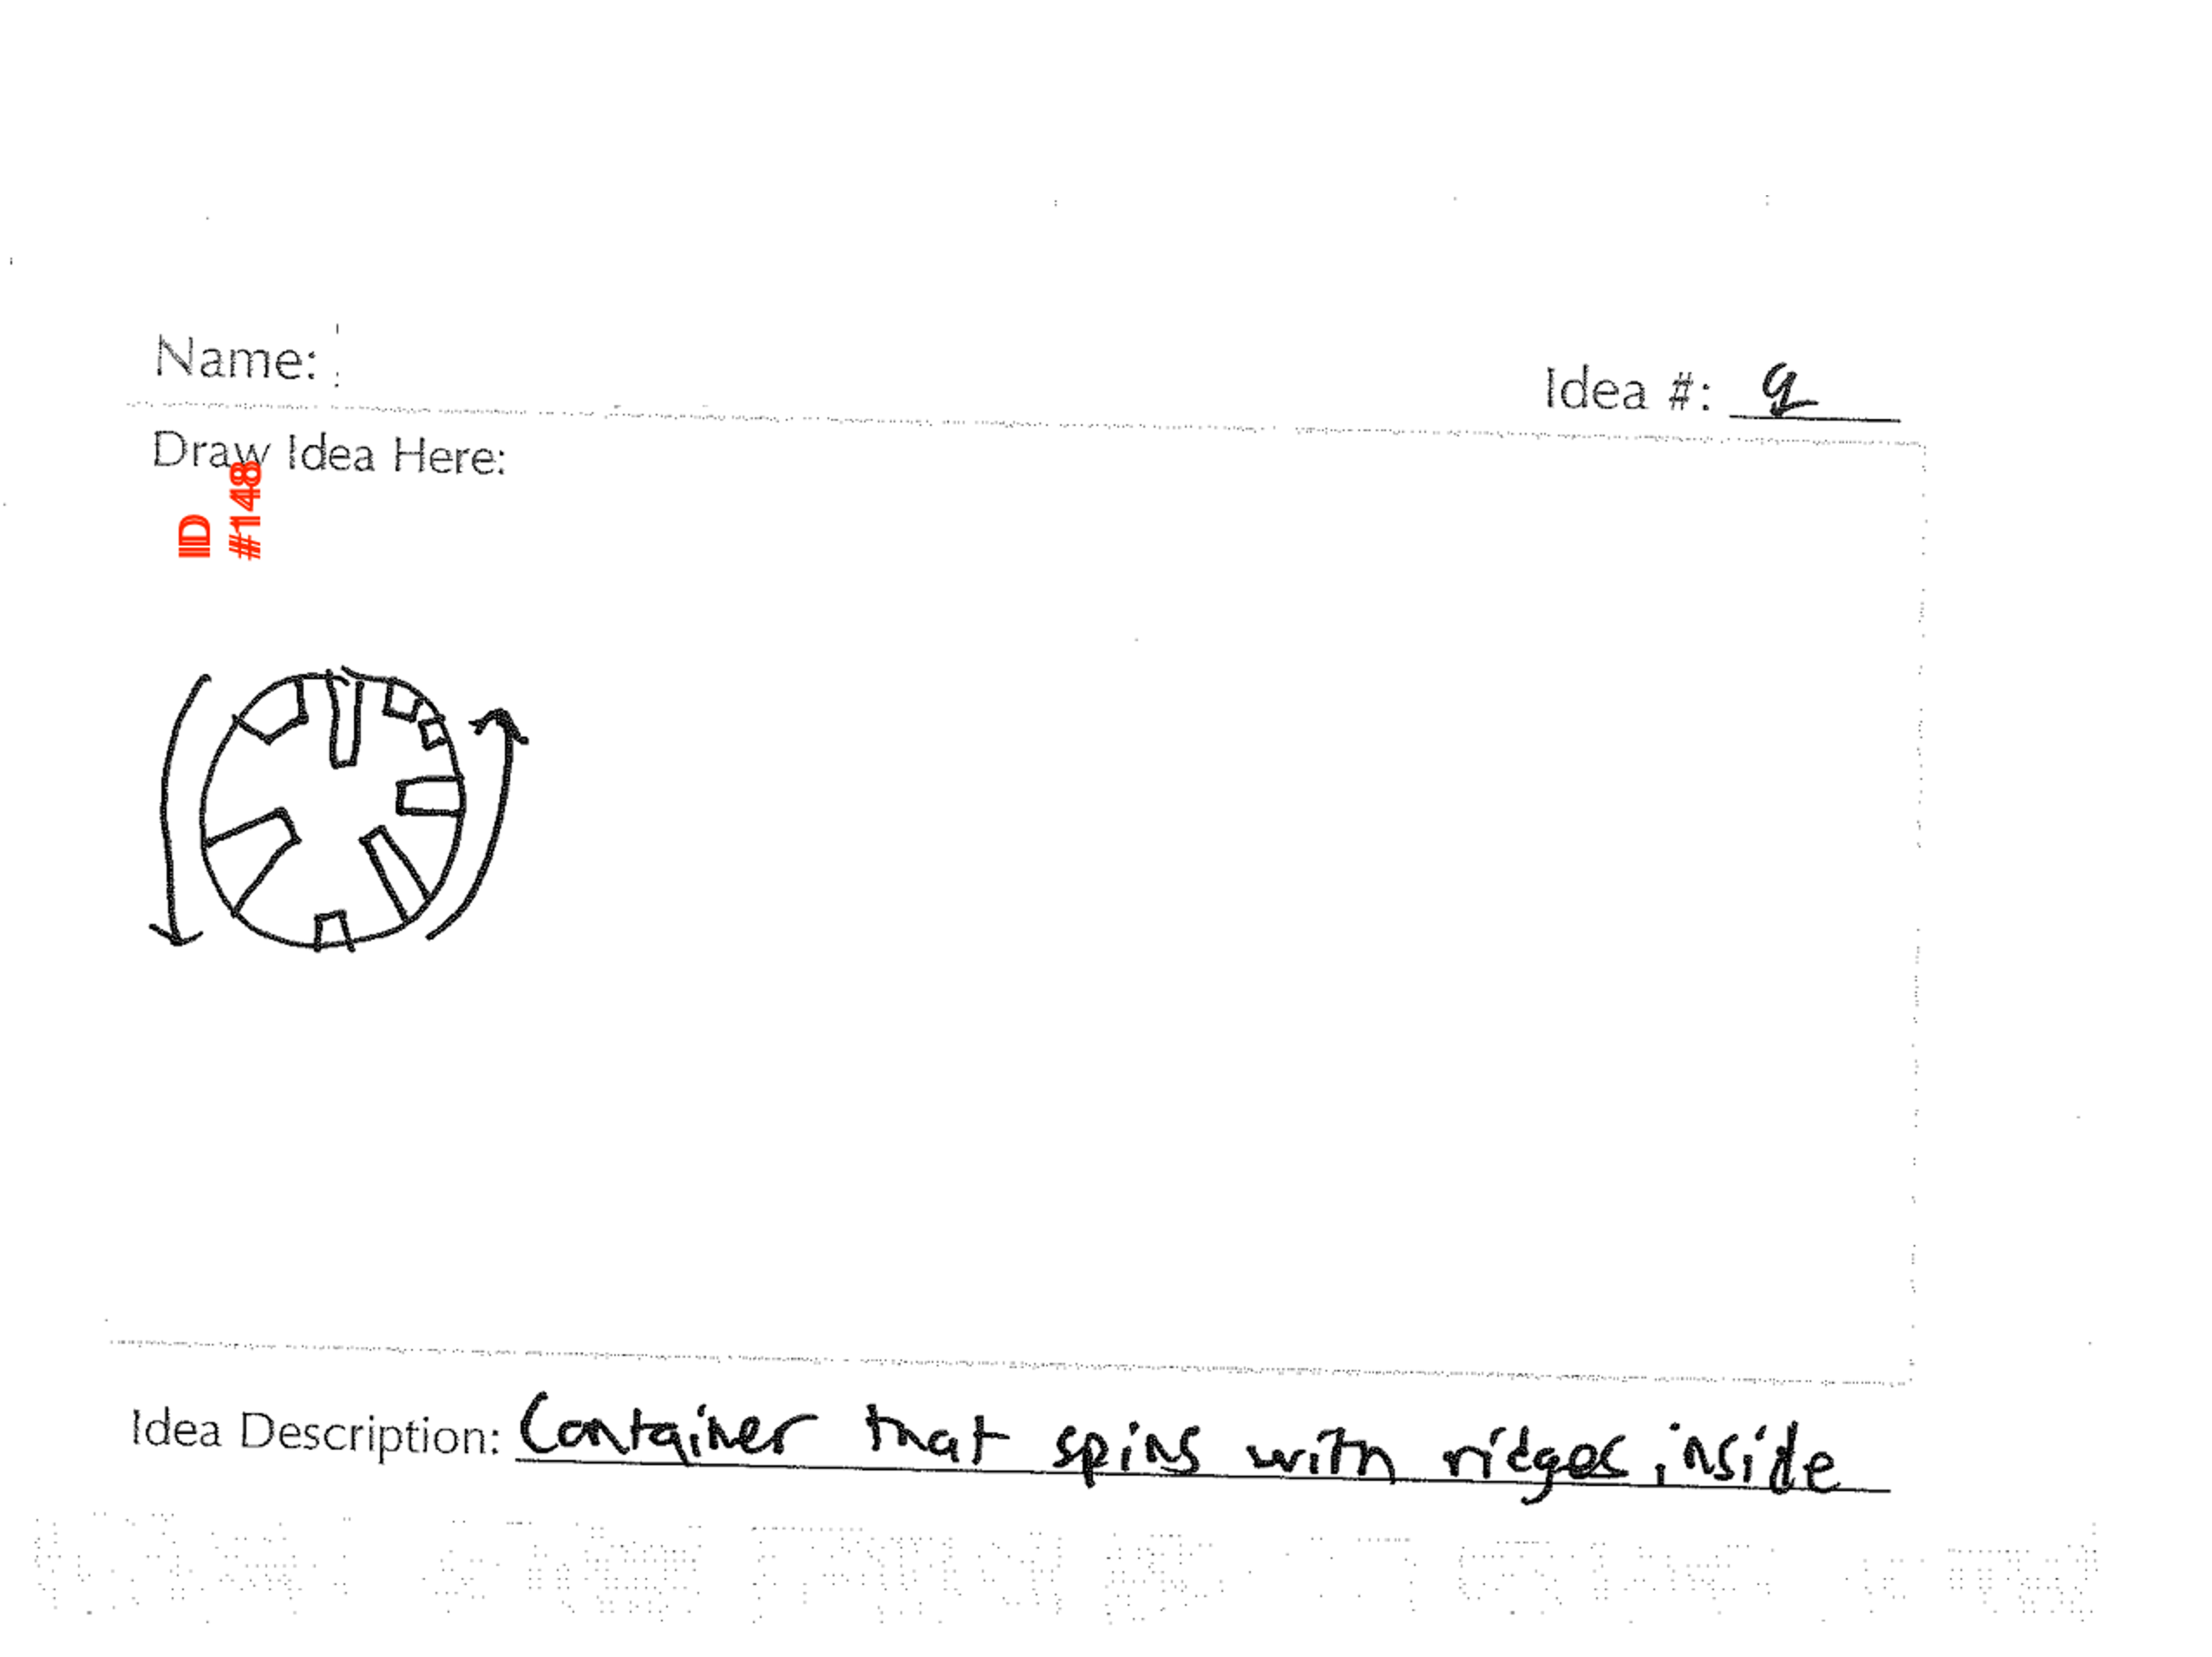 Name:
Idea #: 9
Draw Idea Here:
ID
#148
Idea Description: Container that spins with ridges inside